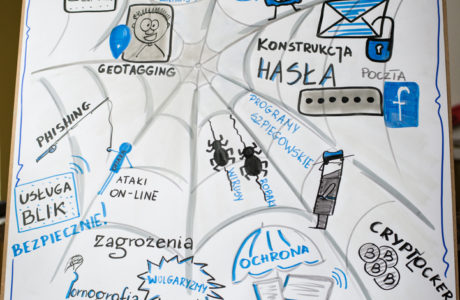 GEOTAGGING
KONSTRUKCJA
HASŁA
POCZTA
f
PHISHING
PROGRAMY
SZPIEGOWSKIE
ATAKI
ON-LINE
WIRUSY
ROBAKI
USŁUGA
BLIK
BEZPIECZNIE!
zagrożenia
OCHRONA
CRYPTLOCKER
B
B B
B B
WULGARYZMY
Pornografia